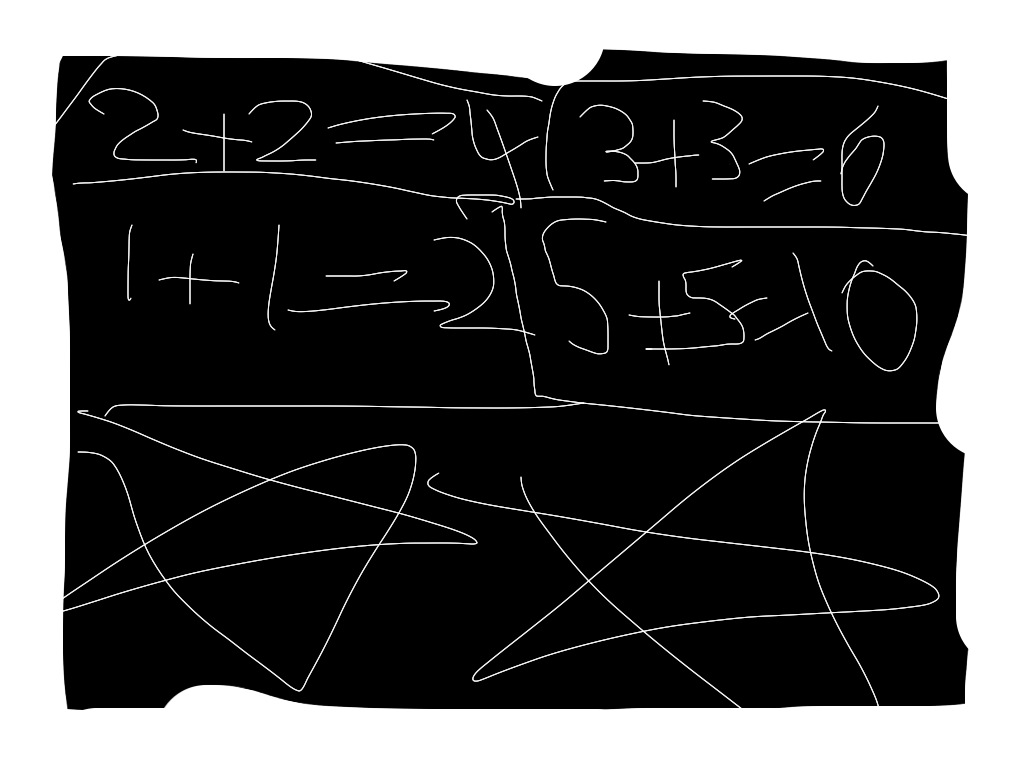 2+2=4
3+3=6
1+1=2
5+5=10